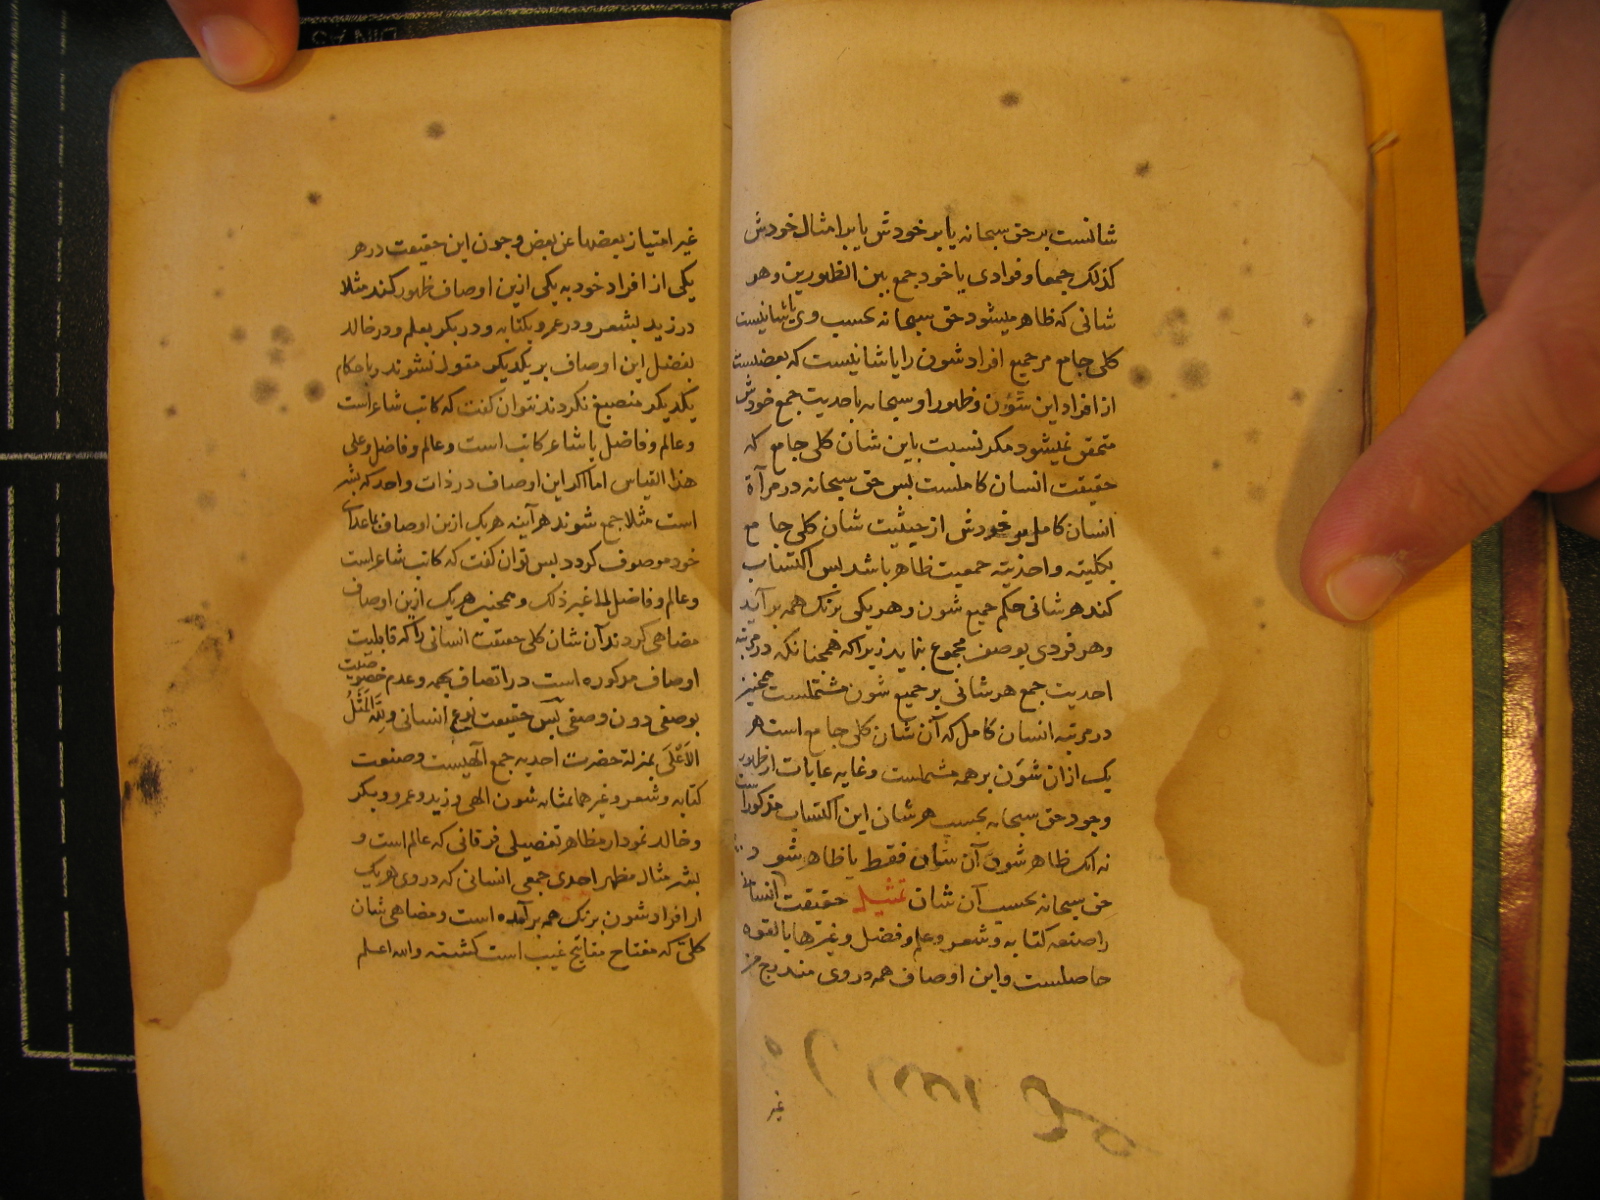 شانست بر حق سبحانه یا بر خودش یا بر امثال خودش
کذلک جمعا و فرادی یا خود جمع بین الظهورین و هو
شانی که ظاهر میشود حق سبحانه بحسب وی یا شانیست
کلی جامع مر جمیع افراد شون را یا شانیست که بعضیست
از افراد این شؤن و ظهور او سبحانه باحدیت جمع خودش
متحقق نمیشود مکر نسبت باین شان کلی جامع که
حقیقت انسان کاملست بس حق سبحانه در مرآة
انسان کامل بر خودش از حیثیت شان کلی جامع
بکلیته و احدیته جمعیت ظاهر باشد بس اکتساب
کند هر شانی حکم جمیع شون و هر یکی برنک همه بر آید
و هر فردی بوصف مجموع نماید زیرا که همجنانکه در مرتبه
احدیت جمع هر شانی بر جمیع شون مشتملست همجنین
در مرتبه انسان کامل که آن شان کلی جامع است هر
یک از ان شون بر همه مشتملست و غایه غایات از ظهور
وجود حق سبحانه بحسب هر شان این اکتساب مذکور است
نه انک ظاهر شون آن شان فقط یا ظاهر شود
حق سبحانه بحسب آن شان تمثیل حقیقت انسانی
را صنعه کتابه و شعر و علم و فضل و غیرها بالقوه
حاصلست و این اوصاف همه در وی مندرج من
غیر
غیر امتیاز بعضها عن بعض و جون این حقیقت در هر
یکی از افراد خود به یکی ازین اوصاف ظهور کند مثلا
در زید بشعر و در عمرو بکتابه و در بکر بعلم و در خالد
بفضل این اوصاف بر یکدیکر مقول نشوند و باحکام
یکدیکر منصبغ نکردند نتوان کفت که کاتب شاعر است
و عالم و فاضل یا شاعر کاتب است و عالم و فاضل و علی
هذا القیاس اما اکر این اوصاف در ذات واحد که بشر
است مثلا جمع شوند هر آینه هر یک ازین اوصاف بما عدای
خود موصوف کردد بس توان کفت که کاتب شاعر است
و عالم و فاضل الی غیر ذلک و همجنین هر یک ازین اوصاف
مضاهی کردند آن شان کلی حقیقت انسانی را که قابلیت
اوصاف مذکوره است در اتصاف بجمه و عدم خصوصیت
بوصفی دون وصفی بس حقیقت نوع انسانی و لله المثل
الأعلی بمنزلة حضرت احدیه جمع آلهیست و صنعت
کتابه و شعر و غیرهما بمثابه شون الهی و زید و عمرو و بکر
و خالد نمودار مظاهر تفصیلی فرقانی که عالم است و
بشر مثال مظهر احدی جمعی انسانی که در وی هر یک
از افراد شون برنک همه بر آمده است و مضاهی شان
کلی که مفتاح مفاتیح غیب است کشته والله اعلم